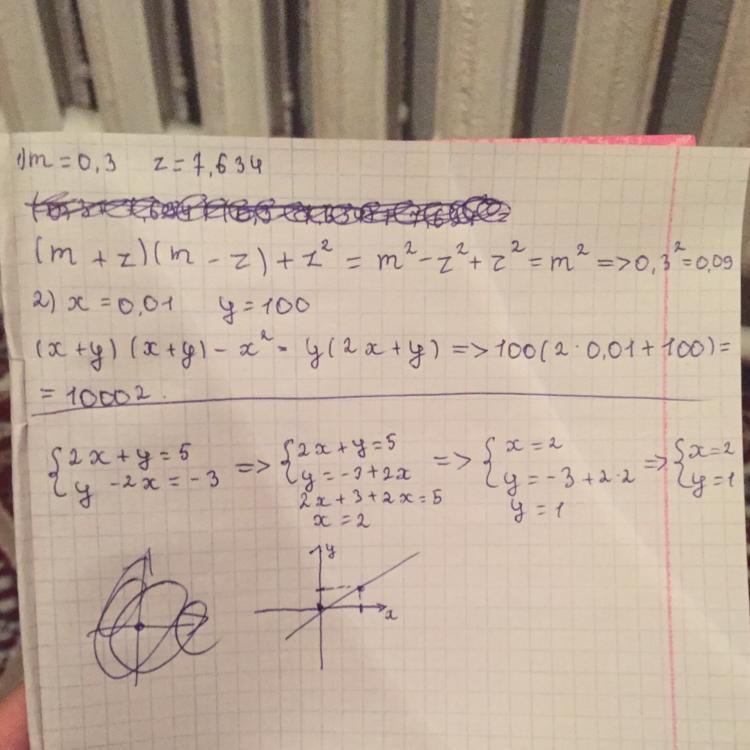 1) m = 0,3 z = 7,634
(m + z)(m - z) + z² = m² - z² + z² = m² => 0,3² = 0,09
2) x = 0,01 y = 100
(x+y) (x+y) - x² = y(2x+y) => 100(2·0,01+100) =
= 10002.
{2x+y=5 => {2x+y=5 => {x=2 => {x=2
{y-2x=-3 {y=-3+2x {y=-3+2·2 {y=1
2x+3+2x=5 y=1
x=2
y
x